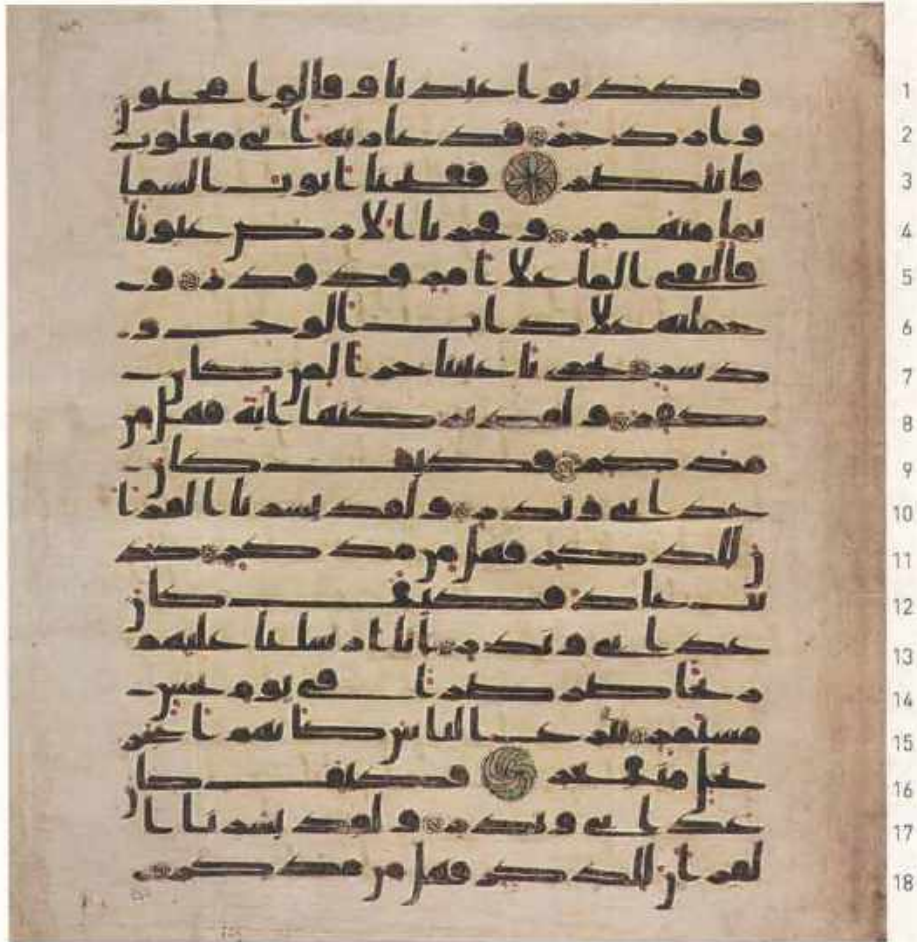 فكذبوا عبدنا وقالوا مجنون 1
وازدجر فدعا ربه اني مغلوب 2
فانتصر ففتحنا ابوب السما 3
بما منهمر وفجرنا الارض عيونا 4
فالتقى الما علا امر قد قدر و 5
حملنه علا ذات الوح و 6
دسر تجري باعيننا جزا لمن كان 7
كفر ولقد تركنها اية فهل من 8
مدكر فكيف كان 9
عذابي ونذر ولقد يسرنا القرا 10
ن للذكر فهل من مدكر كذ 11
بت عاد فكيف كان 12
عذابي ونذر انا ارسلنا عليهم 13
ريحا صرصرا في يوم نحس 14
مستمر تنزع الناس كانهم اعجز 15
نخل منقعر فكيف كان 16
عذابي ونذر ولقد يسرنا ا 17
لقران للذكر فهل من مدكر 18